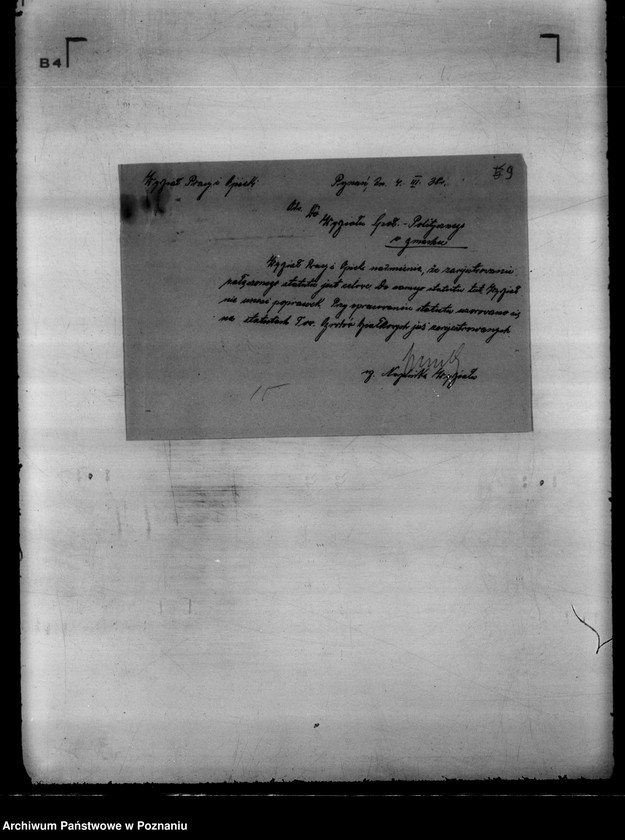 B4
Wydział Pracy i Opieki
Poznań, dn. 4. VI. 36r.
9
Do
Wydziału Społ.-Politycznego
w gmachu
Wydział Pracy i Opieki nadmienia, że zarejestrowanie
załączonego statutu jest celowe. Do samego statutu tut. Wydział
nie wnosi poprawek. Przy opracowaniu statutu wzorowano się
na statutach Tow. Ogrodów Działkowych już zarejestrowanych.
Naczelnika Wydziału
15
Archiwum Państwowe w Poznaniu